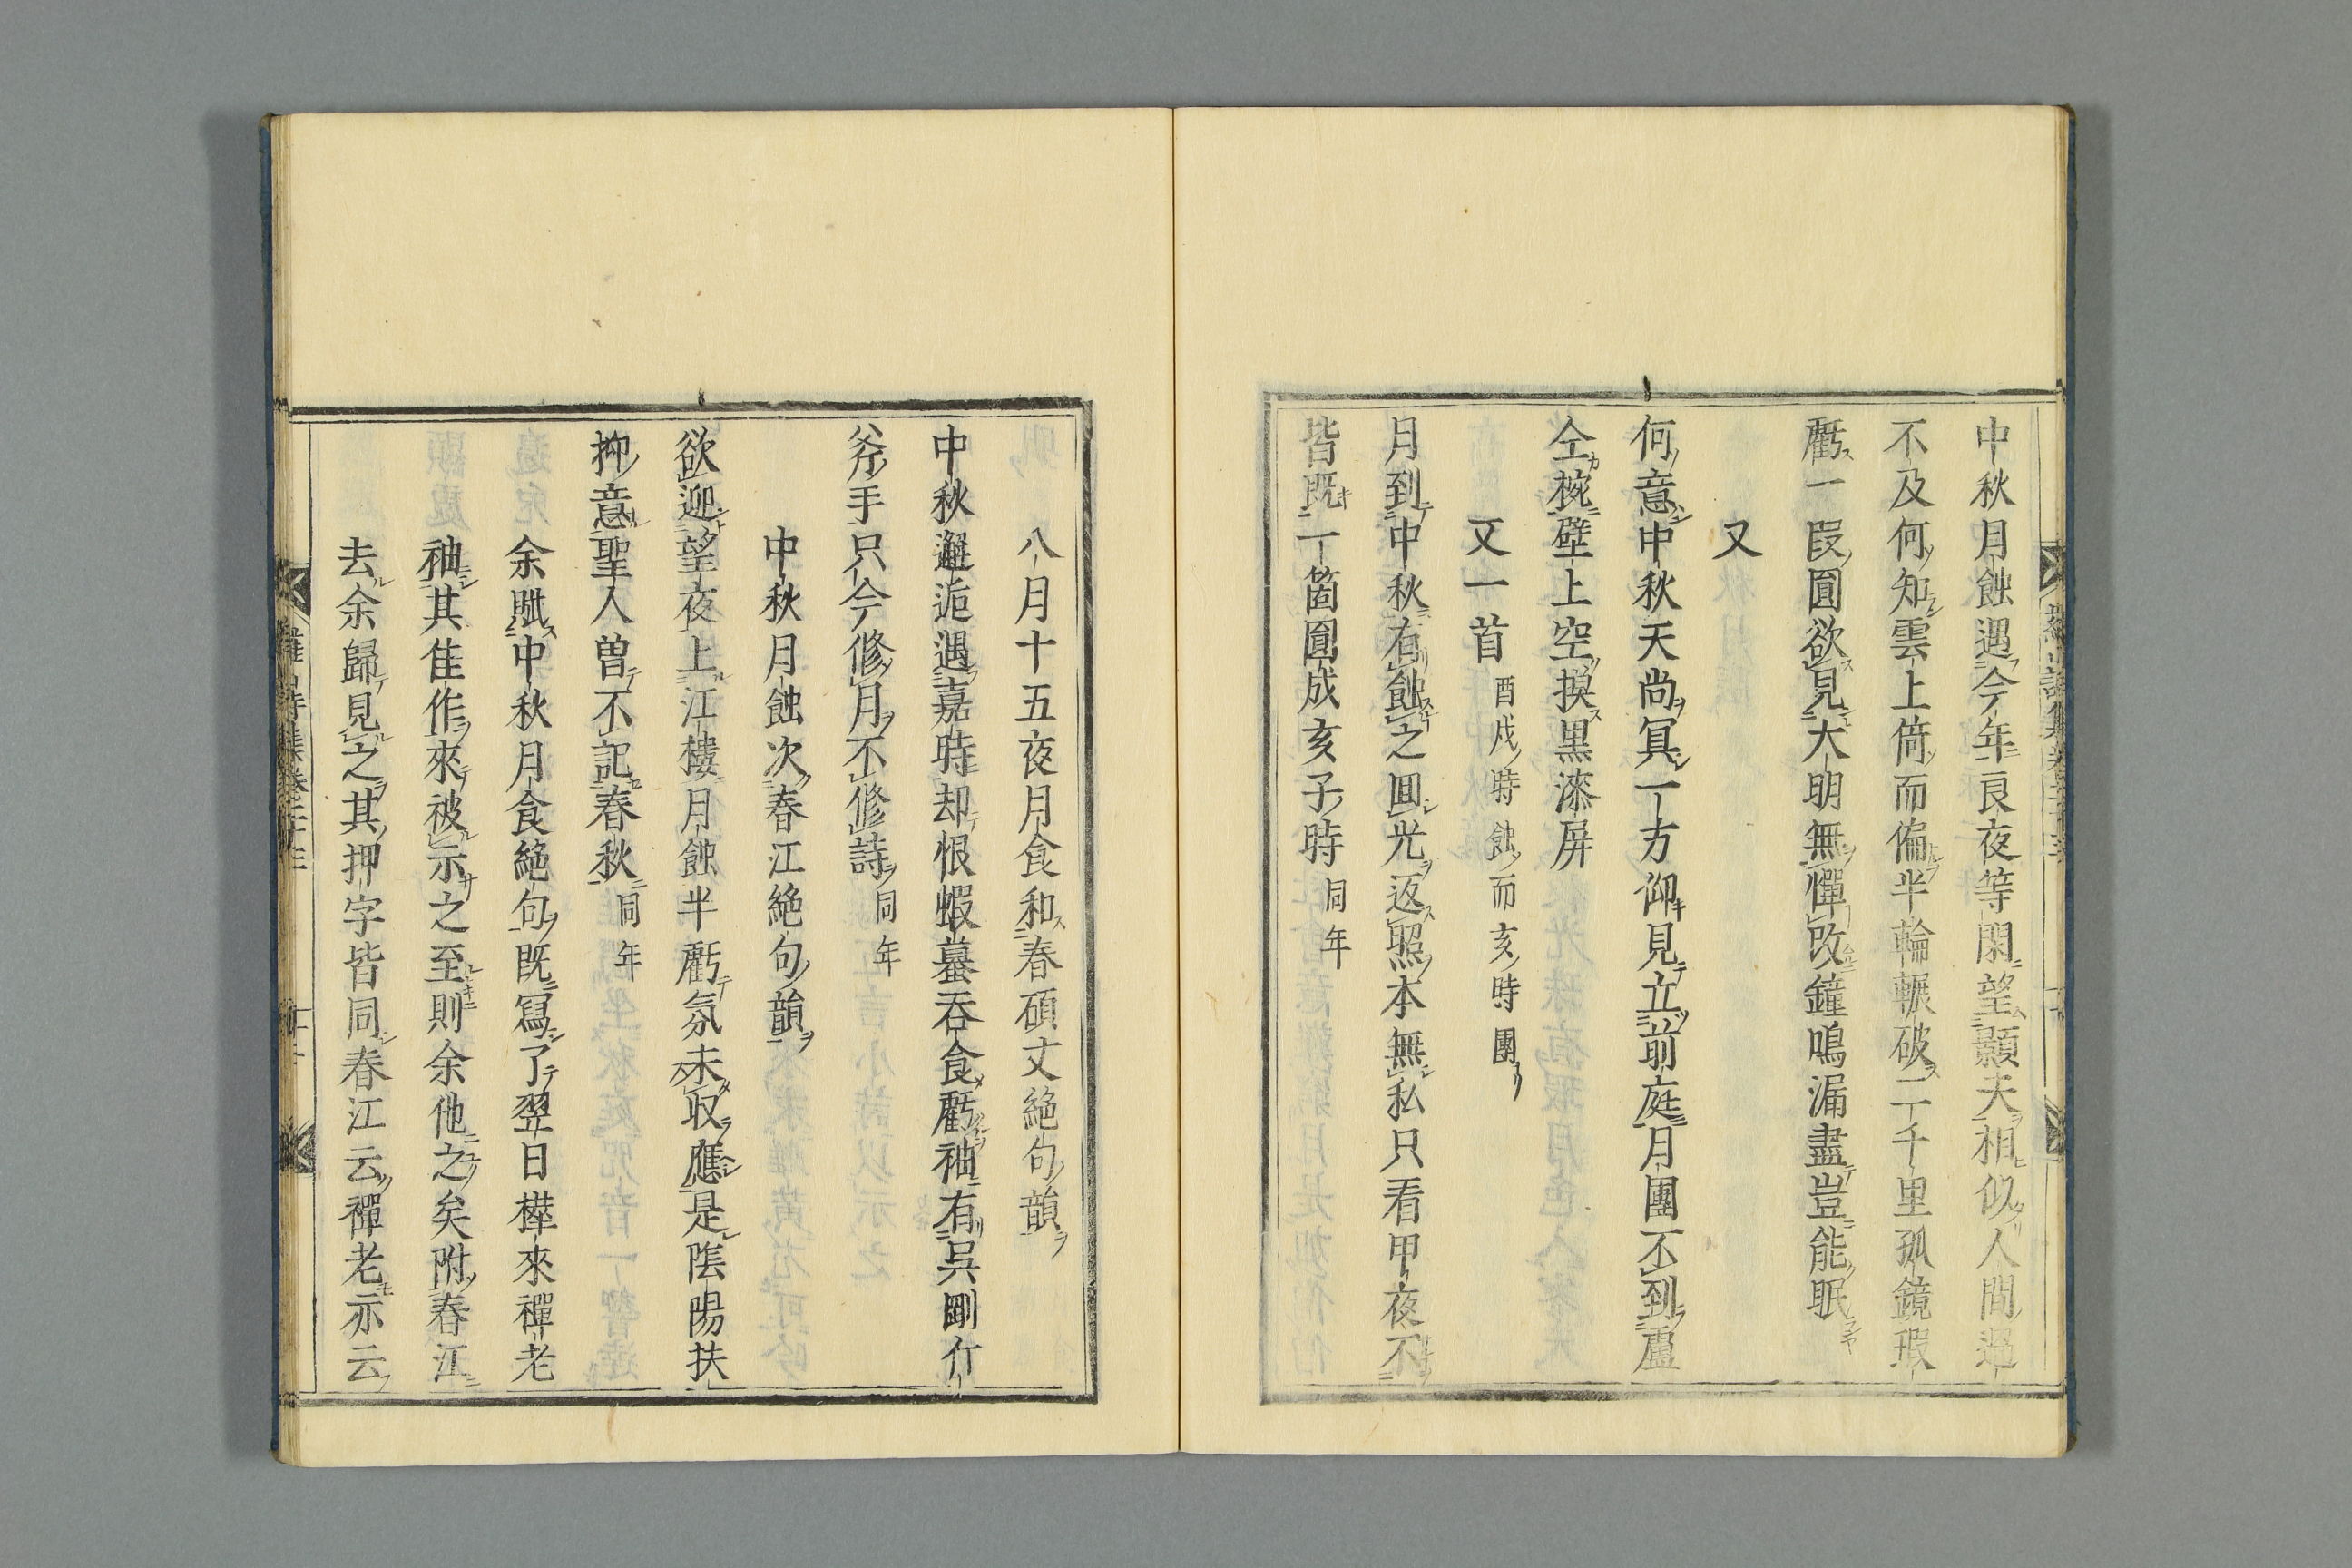 中秋月蝕遇今年良夜等閑望顥天相似人間過
不及何知雲上倚而偏半輪輾破二千里孤鏡瑕
虧一段圓欲見大明無憚改鐘鳴漏盡豈能眠
又
何意中秋天尚冥一方仰見立前庭月團不到盧
仝椀壁上空摸黒漆屏
又一首 酉戌ノ時蝕ツ而亥ノ時團ナリ
月到中秋有蝕之回光返照本無私只看甲夜不
皆既一箇圓成亥子時 同年
八月十五夜月食和春碩丈絶句韻
中秋邂逅遇嘉時却恨蝦蟇吞食虧袖有呉剛竹
斧手只今修月不修詩 同年
中秋月蝕次春江絶句韻
欲迎望夜上江樓月蝕半虧氛未収應是陰陽扶
抑意聖人曽不記春秋 同年
余賦中秋月食絶句既寫了翌日襷來禪老
袖其佳作來被示之至則余他之矣附春江
去余歸見之其押字皆同春江云禪老亦云